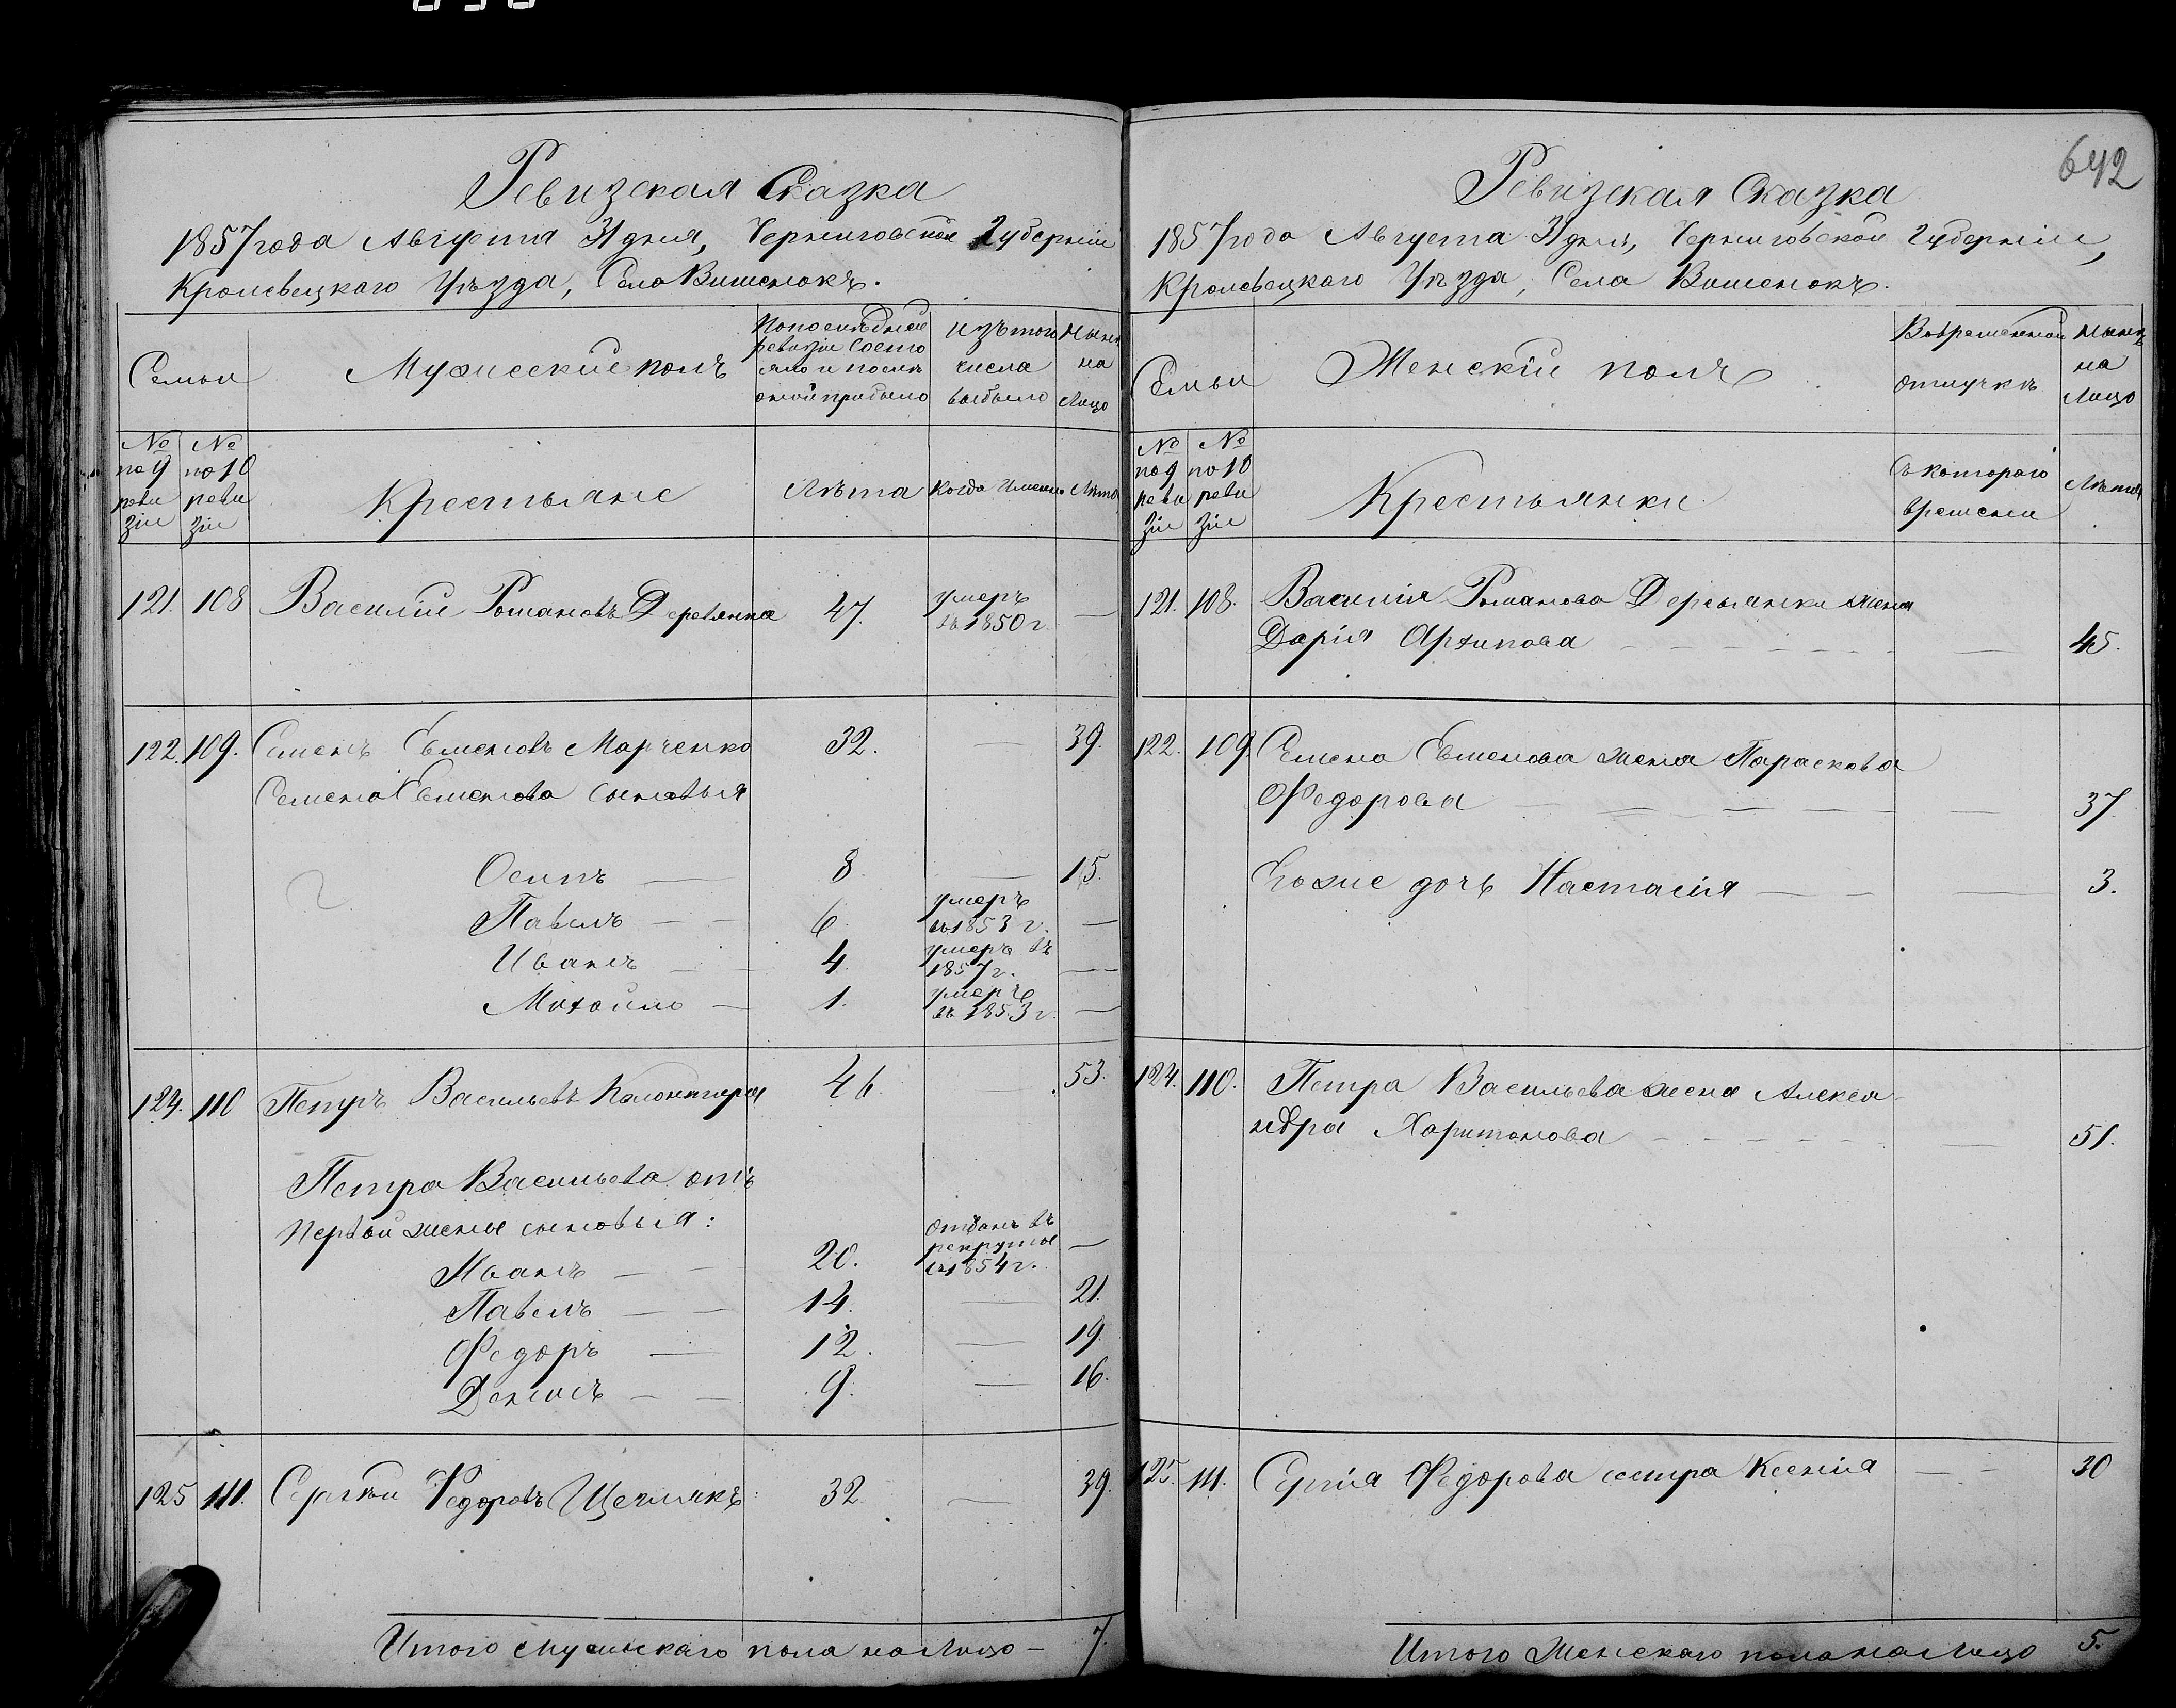 642
Ревизская Сказка
1857 года Августа 31 дня, Черниговской Губерніи
Кролевецкаго Уѣзда, Села Вишенокъ.
Семьи
Мужеский полъ
По последней
ревизіи состо
яло и послѣ
оной прибыло
Изъ того
числа
выбыло
Нынѣ
на
лицо
№
по 9
реви
зіи
№
по 10
реви
зіи
Крестьяне
Лѣта
Когда именно
Лѣта
121. 108 Василій Романовъ Деревянка 47. умеръ
въ 1850 г. —
122. 109. Семенъ Евменовъ Марченко 32. — 39.
Семена Евменова сыновья
Осипъ — 8. — 15.
Павелъ — — 6. умеръ
въ 1853 г. —
Иванъ — — 4. умеръ въ
1857 г. —
Михайло — 1. умеръ
въ 1853 г. —
124. 110 Петръ Васильевъ 46 — 53.
Петра Васильева отъ
первой жены сыновья:
Иванъ — — 20. отданъ въ
рекруты
въ 1854 г. —
Павелъ — — 14. — 21.
Федоръ — 12. — 19.
Денисъ — — 9. — 16.
125 111. Сергѣй Федоровъ 32. — 39.
Итого мужескаго пола на лицо — 7.
Ревизская Сказка
1857 года Августа 31 дня, Черниговской Губерніи,
Кролевецкаго Уѣзда, Села Вишенокъ.
Семьи
Женскій полъ
Во временной
отлучкѣ
Нынѣ
на
лицо
№
по 9
реви
зіи
№
по 10
реви
зіи
Крестьянки
Съ котораго
времени
Лѣта
121. 108. Василія Романова Деревянки жена
Дарія Архипова — 45.
122. 109. Семена Евменова жена Параскева
Федорова — 37
Егоже дочь Настасія — 3.
124. 110. Петра Васильева жена Алекса
ндра Харитонова — 51.
125. 111. Сергія Федорова сестра Ксенія — 30
Итого Женскаго пола на лицо 5.